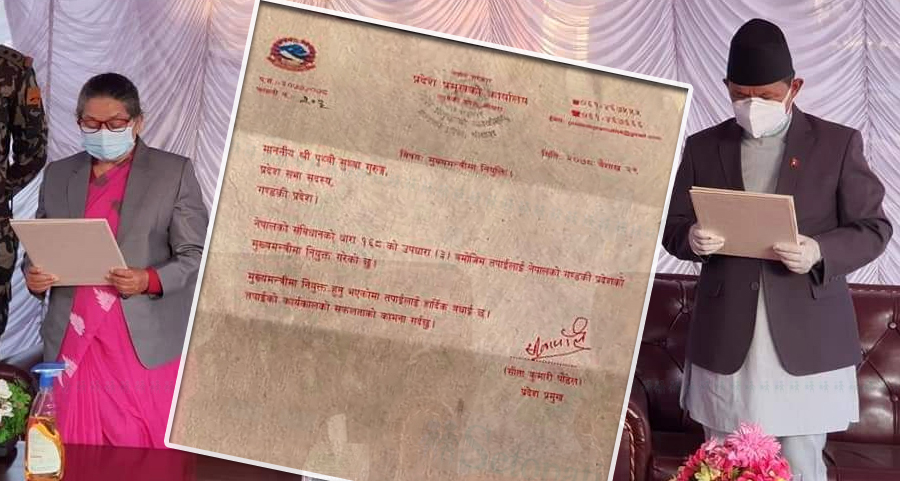 नेपाल सरकार
प्रदेश प्रमुखको कार्यालय
गण्डकी प्रदेश, पोखरा
प.सं.-२०७७/०७८
चलानी नं.-
२०६
मिति: २०७८ वैशाख २९
विषय: मुख्यमन्त्रीमा नियुक्ति।
माननीय श्री पृथ्वी सुब्बा गुरुङ,
प्रदेश सभा सदस्य,
गण्डकी प्रदेश।
नेपालको संविधानको धारा १६८ को उपधारा (३) बमोजिम तपाईंलाई नेपालको गण्डकी प्रदेशको
मुख्यमन्त्रीमा नियुक्त गरेको छु।
मुख्यमन्त्रीमा नियुक्त हुनु भएकोमा तपाईंलाई हार्दिक बधाई छ।
तपाईंको कार्यकालको सफलताको कामना गर्दछु।
(सीता कुमारी पौडेल)
प्रदेश प्रमुख